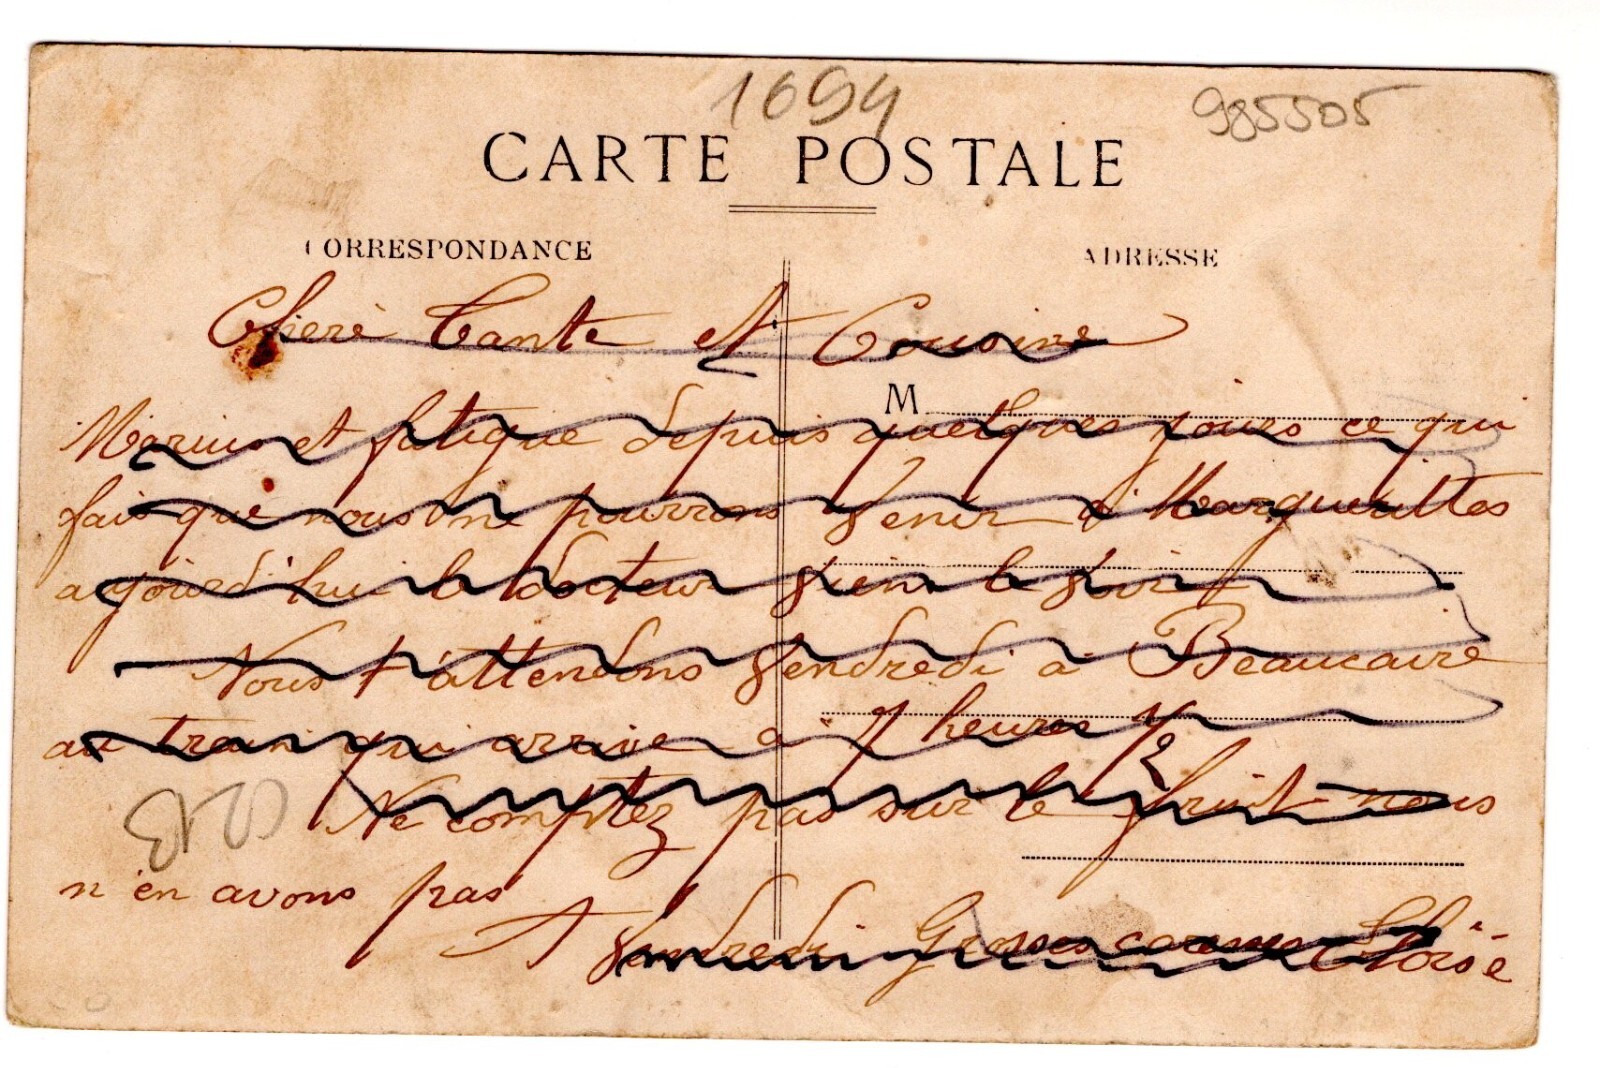 1694
985505
CARTE POSTALE
CORRESPONDANCE
ADRESSE
Cherè Tante et Cousine
M
Marius et fatigue depuis quelques jours ce qui
fais que nous ne pourrons venir à Marguerittes
aujourd'hui le docteur vien le voir
Nous t'attendons vendredi à Beaucaire
au train qui arrive à 7 heures 1/2
Ne comptez pas sur le fruit nous
n'en avons pas
A vendredi Grosses caresses Éloïse